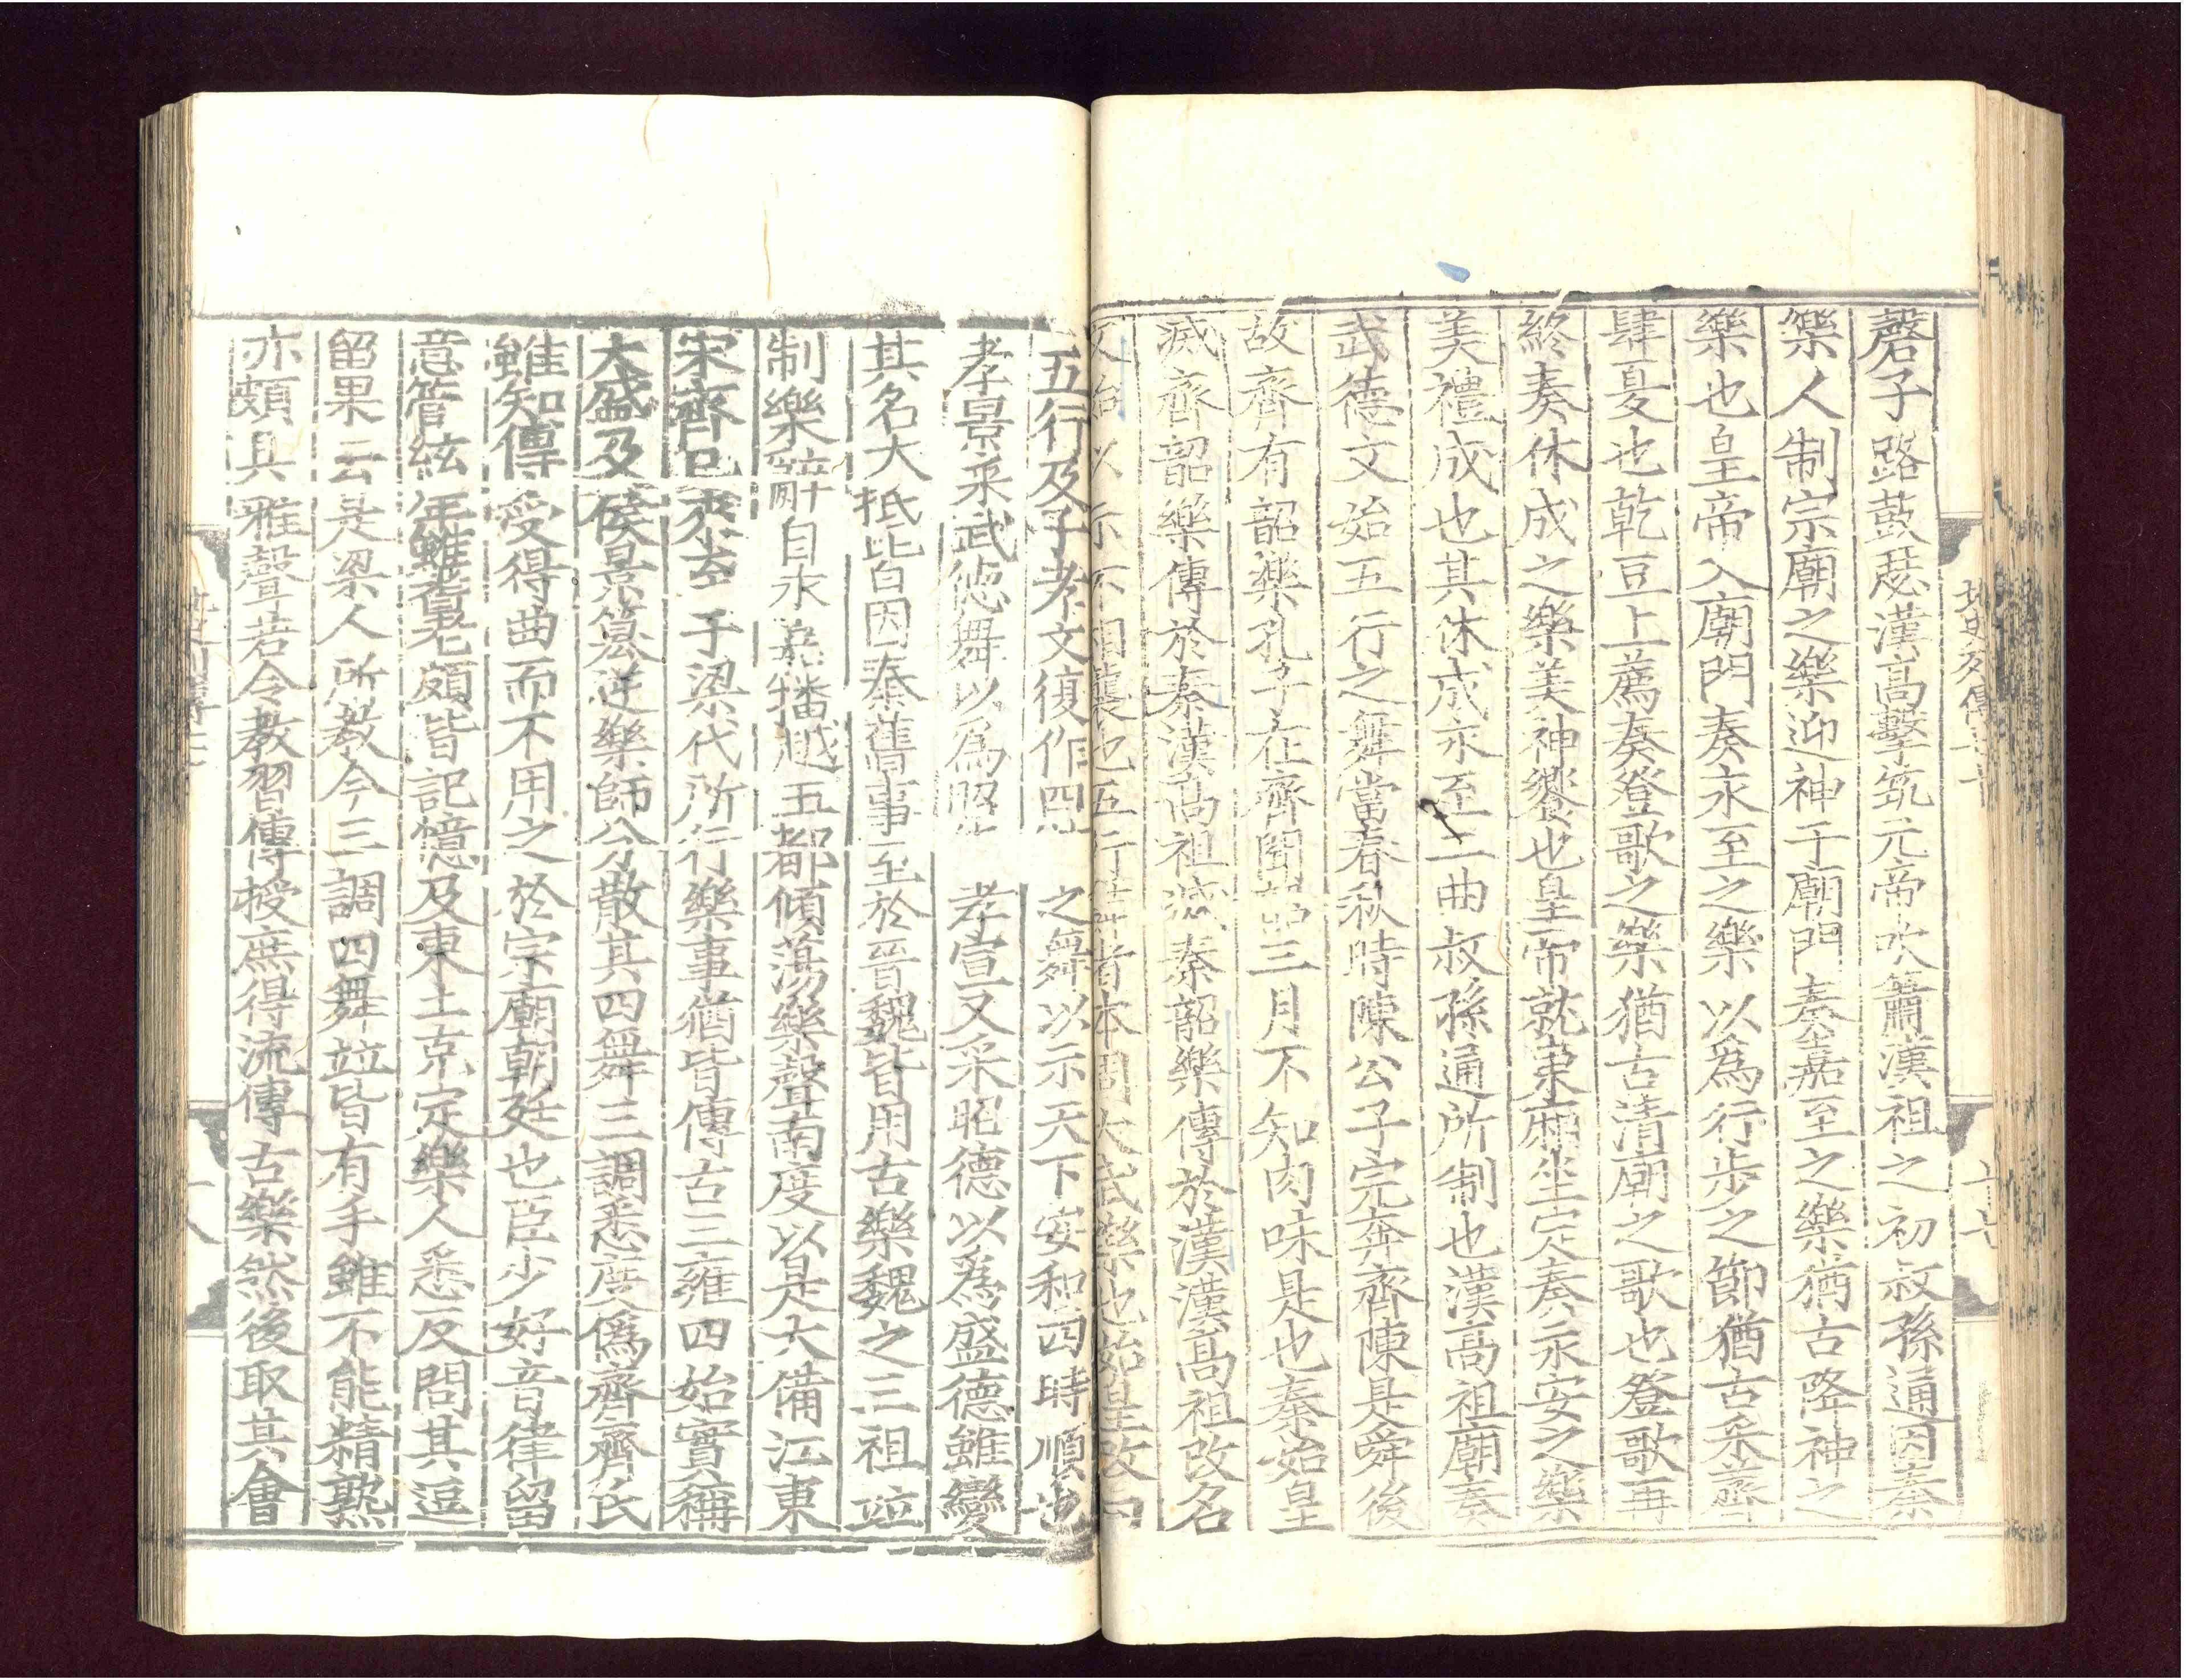 磬子路鼓瑟漢高擊筑元帝吹簫漢祖之初叔孫通因秦
樂人制宗廟之樂迎神于廟門奏嘉至之樂猶古降神之
樂也皇帝入廟門奏永至之樂以爲行步之節猶古采薺
肆夏也乾豆上薦奏登歌之樂猶古清廟之歌也登歌再
終奏休成之樂美神饗也皇帝就東廂坐定奏永安之樂
美禮成也其休成永至二曲叔孫通所制也漢高祖廟奏
武德文始五行之舞當春秋時陳公子完奔齊陳是舜後
故齊有韶樂孔子在齊聞韶三月不知肉味是也秦始皇
滅齊韶樂傳於秦漢高祖滅秦韶樂傳於漢漢高祖改名
文始以示不相襲也五行舞者本周大武樂也始皇改曰
五行及于孝文復作四時之舞以示天下安和四時順也
孝景采武德舞以爲昭德孝宣又采昭德以爲盛德雖變
其名大抵皆因秦舊事至於晉魏皆用古樂魏之三祖竝
制樂辭自永嘉播越五都傾蕩樂聲南度以是大備江東
宋齊已來至于梁代所行樂事猶皆傳古三雍四始實稱
大盛及侯景簒逆樂師分散其四舞三調悉度僞齊齊氏
雖知傳受得曲而不用之於宗廟朝廷也臣少好音律留
意管絃年雖耆老頗皆記憶及東土克定樂人悉反問其逗
留果云是梁人所教今三調四舞竝皆有手雖不能精熟
亦頗具雅聲若令教習傳授庶得流傳古樂然後取其會
十八